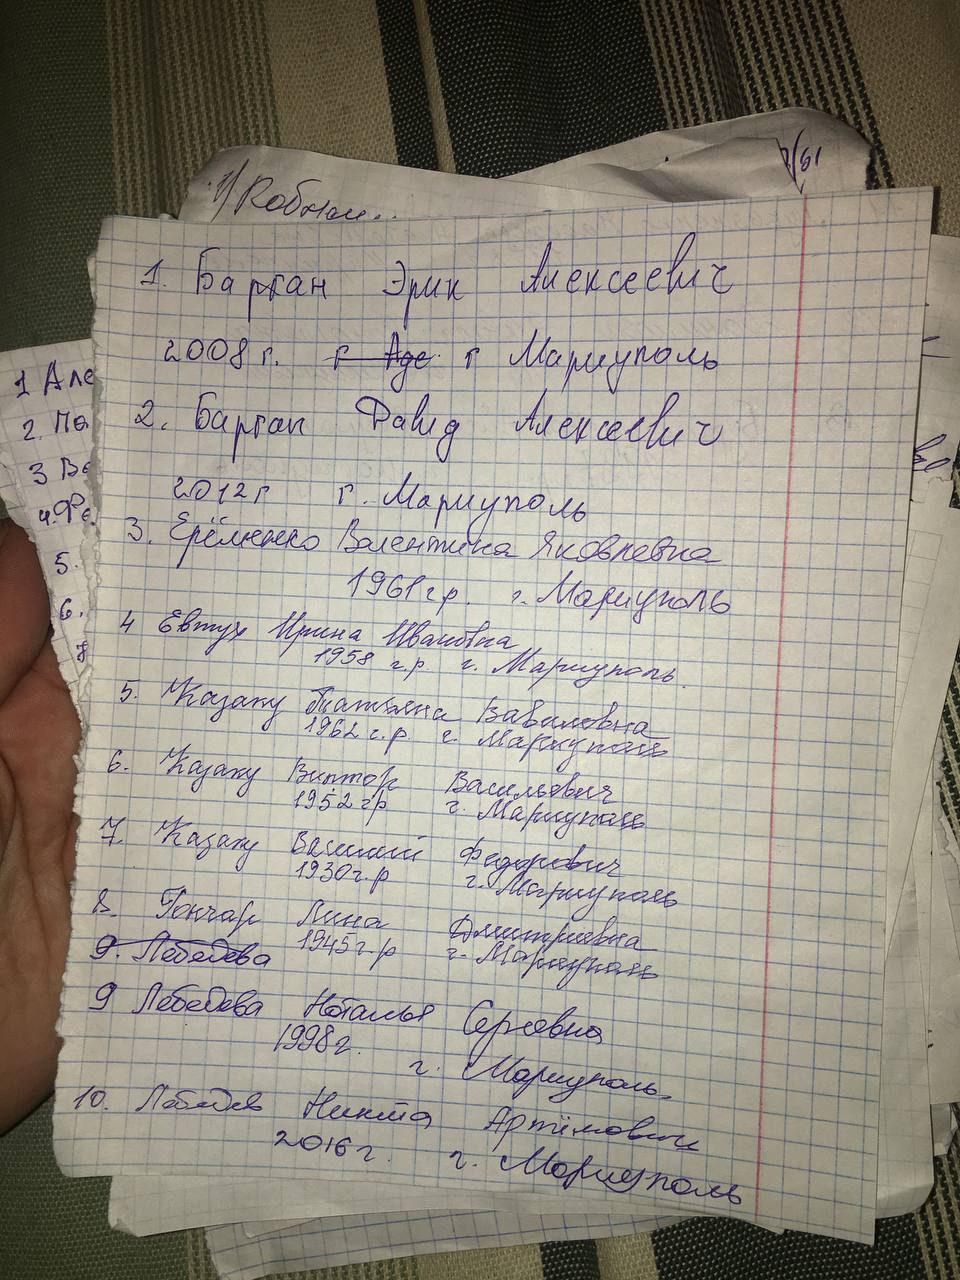 1) Кобзи...
1. Барган Эрик Алексеевич
2008 г. г Аде г Мариуполь
2. Барган Давид Алексеевич
2012 г г. Мариуполь
3. Ерёменко Валентина Яковлевна
1961 г.р. г. Мариуполь
4 Евтух Ирина Ивановна
1958 г.р г. Мариуполь.
5. Казаку Татьяна Вавиловна
1962 г.р. г. Мариуполь
6. Казаку Виктор Васильевич
1952 гр г. Мариуполь
7. Казаку Василий Федорович
1930 г.р г. Мариуполь
8. Гончар Лина Дмитриевна
1945 г.р г. Мариуполь
9. Лебедева
9 Лебедева Наталья Сергеевна
1998 г. г. Мариуполь.
10. Лебедев Никита Артёмович
2016 г. г. Мариуполь
1 Але
2. Па
3 Ве
4. Фе
5.
6.